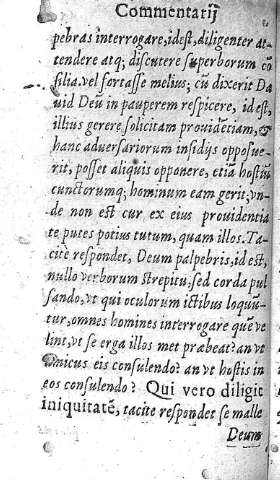 Commentarij
pebras interrogare, idest, diligenter at-
tendere atq; discutere superborum cõ
silia. vel fortasse melius; cũ dixerit Da
uid Deũ in pauperem respicere, id est,
illius gerere solicitam prouidẽtiam, &
hanc aduersariorum insidijs opposue-
rit, posset aliquis opponere, etiã hostiũ
cunctorumq; hominum eam gerit; vn-
de non est cur ex eius prouidentia
te putes potius tutum, quam illos. Ta-
cite respondet, Deum palpebris, id est,
nullo verborum strepitu, sed corda pul
sando, vt qui oculorum ictibus loquũ-
tur, omnes homines interrogare que ve
lint, vt se erga illos met præbeat? an vt
amicus eis consulendo? an vt hostis in
eos consulendo? Qui vero diligit
iniquitatẽ, tacite respondet se malle
Deum